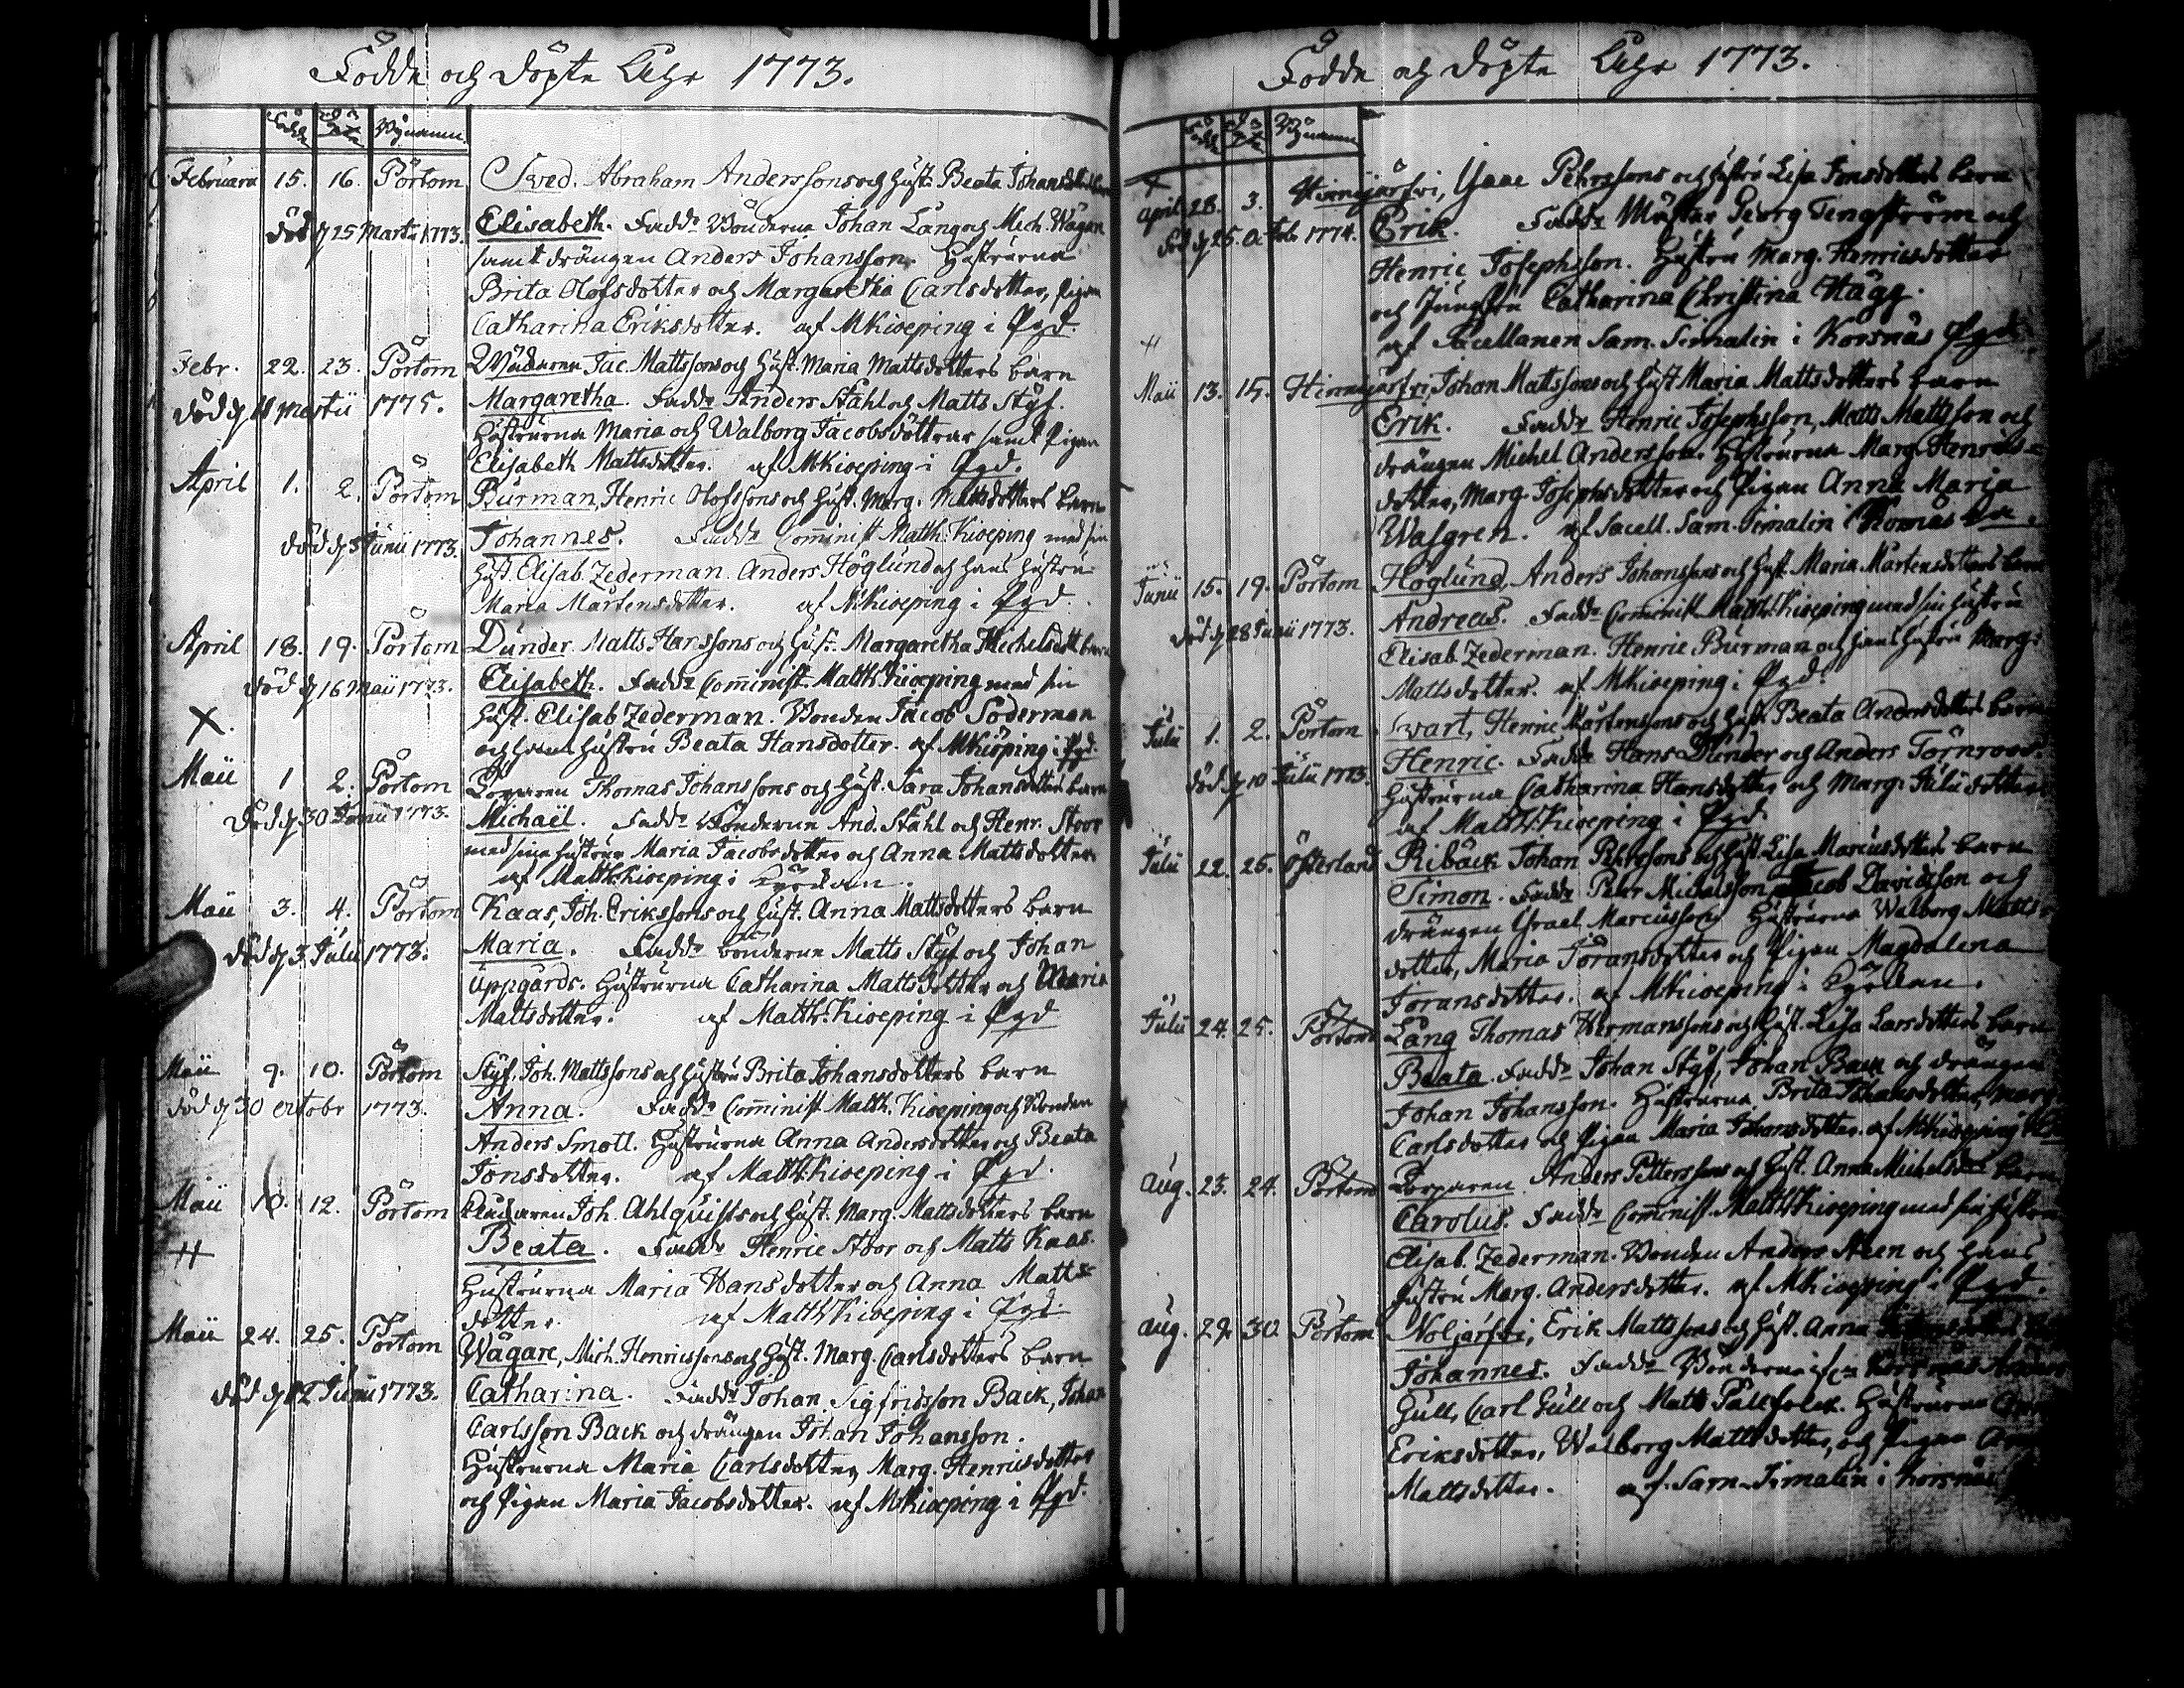 Födde och Döpte Åhr 1773.
Födde Döpte Bynamn
Februarii 15. 16. Pörtom Sved. Abraham Anderssons och Hust. Beata Johansdotters barn
död d 25 Martii 1773. Elisabeth. Fadd. Bönderne Johan Lång och Mich. Wägar
samt drängen Anders Johansson. Hustrurna
Brita Olofsdotter och Margaretha Carlsdotter, Pigan
Catharina Eriksdotter. af MKioeping i Kyrd.
Febr. 22. 23. Pörtom Jac. Mattssons och Hust. Maria Mattsdotters barn
död d 11 Martii 1775. Margaretha. Fadd. Anders Ståhl och Matts Styf.
Hustrurna Maria och Walborg Jacobsdöttrar samt Pigan
Elisabeth Mattsdotter. af MKioeping i Kyrd.
April 1. 2. Pörtom Burman, Henric Olofssons och Hust. Marg. Mattsdotters barn
död d 5 Junii 1773. Johannes. Fadd. Comminist. Matth. Kioeping med sin
Hust. Elisab. Zederman. Anders Höglund och hans Hustru
Maria Mårtensdotter. af MKioeping i Kyrd.
April 18. 19. Pörtom Dunder. Matts Hanssons och Hust. Margaretha Michelsdott. barn
död d 16 Maii 1773. Elisabeth. Fadd. Comminist. Matth. Kioeping med sin
X. Hust. Elisab. Zederman. Bonden Jacob Söderman
och hans Hustru Beata Hansdotter. af MKiöping i Kyrd.
Maii 1 2. Pörtom Torparen Thomas Johanssons och Hust. Sara Johansdotters barn
död d 30 Junii 1773. Michaël. Fadd. Bönderne And. Ståhl och Henr. Stoor
med sina Hustrur Maria Jacobsdotter och Anna Mattsdotter
af Matth. Kioeping i Kyrckan.
Maii 3. 4. Pörtom Kaas, Joh. Erikssons och Hust. Anna Mattsdotters barn
död d 3 Julii 1773. Maria. Fadd. bönderne Matts Styf och Johan
Uppgårds. Hustrurna Catharina Mattsdotter och Maria
Mattsdotter. af Matth. Kioeping i Kyrd
Maii 9. 10. Pörtom Styf, Joh. Mattssons och Hustru Brita Johansdotters barn
död d 30 octobr 1773. Anna. Fadd. Comminist. Matth. Kioeping och Bonden
Anders Smolt. Hustrurna Anna Andersdotter och Beata
Jonsdotter. af Matth. Kioeping i Kyrd.
Maii 10. 12. Pörtom Joh. Ahlquists och Hust. Marg. Mattsdotters barn
H Beata. Fadd. Henric Stoor och Matts Kaas.
Hustrurna Maria Hansdotter och Anna Matts
dotter. af Matth. Kioeping i Kyrd.
Maii 24. 25. Pörtom Wägare, Mich. Henricssons och Hust. Marg. Carlsdotters barn
död d 12 Junii 1773. Catharina. Fadd. Johan Sigfridsson Back, Johan
Carlsson Back och drängen Johan Johansson.
Hustrurna Maria Carlsdotter, Marg. Henricsdotter
och Pigan Maria Jacobsdotter. af MKioeping i Kyrd.
Födde och Döpte Åhr 1773.
Födde Döpte Bynamn
X April 28. 3. Hinnejärfvi, Isaac Pehrssons och Hustru Lisa Jonsdotters barn
död d 25 1774. Erik. Fadd. Mäster Georg Tengström och
Henric Josephsson. Hustru Marg. Henricsdotter
och Jungfru Catharina Christina Hägg.
H af Sacellanen Sam. Simalin i Korsnäs Kyrd.
Maii 13. 15. Hinnejärfvi, Johan Mattssons och Hust Maria Mattsdotters barn
Erik. Fadd. Henric Josephsson, Matts Mattsson och
drängen Michel Andersson. Hustrurna Marg. Henrics=
dotter, Marg. Josephsdotter och Pigan Anna Maria
Wasgren. af Sacell. Sam. Simalin i Korsnäs
Junii 15. 19. Pörtom Höglund, Anders Johanssons och Hust. Maria Mårtensdotters barn
död d 28 Junii 1773. Andreas. Fadd. Comminist. Matth. Kioeping med sin Hustru
Elisab. Zederman. Henric Burman och hans Hustru Marg.
Mattsdotter. af MKioeping i Kyrd.
Julii 1. 2. Pörtom Svart, Henric Mårtenssons och Hust. Beata Andersdotters barn
död d 10 Julii 1773. Henric. Fadd. Hans Dunder och Anders Törnroos.
Hustrurna Catharina Hansdotter och Marg. Julii dotter
af Matth. Kioeping i Kyrd.
Julii 22. 25. Österland Ribäck Johan Pehrssons och Hust. Lisa Marcusdotters barn
Simon. Fadd. Pehr Michelsson, Jacob Davidsson och
drängen Israel Marcusson. Hustrurna Walborg Matts
dotter, Maria Jöransdotter och Pigan Magdalena
Jöransdotter. af MKioeping i Kyrckan.
Julii 24. 25. Pörtom Lång Thomas Hermanssons och Hust. Lisa Larsdotters barn
Beata. Fadd. Johan Styf, Johan Back och drängen
Johan Johansson. Hustrurna Brita Johansdotter, Marg.
Carlsdotter och Pigan Maria Johansdotter. af MKioeping
Aug. 23. 24. Pörtom Torparen Anders Petterssons och Hust. Anna Michelsdotters barn
Carolus. Fadd. Comminist. Matth. Kioeping med sin Hustru
Elisab. Zederman. Bonden Anders Steen och hans
Hustru Marg. Andersdotter. af MKioeping i Kyrd.
Aug. 29. 30. Pörtom Noljärfvi, Erik Mattssons och Hust. Anna
Johannes. Fadd. Bönderne ifrån Korsnäs
Gull, Carl Gull och Matts Hustrurna
Eriksdotter, Walborg Mattsdotter, och Pigan
Mattsdotter. af Sam. Simalin i Korsnäs